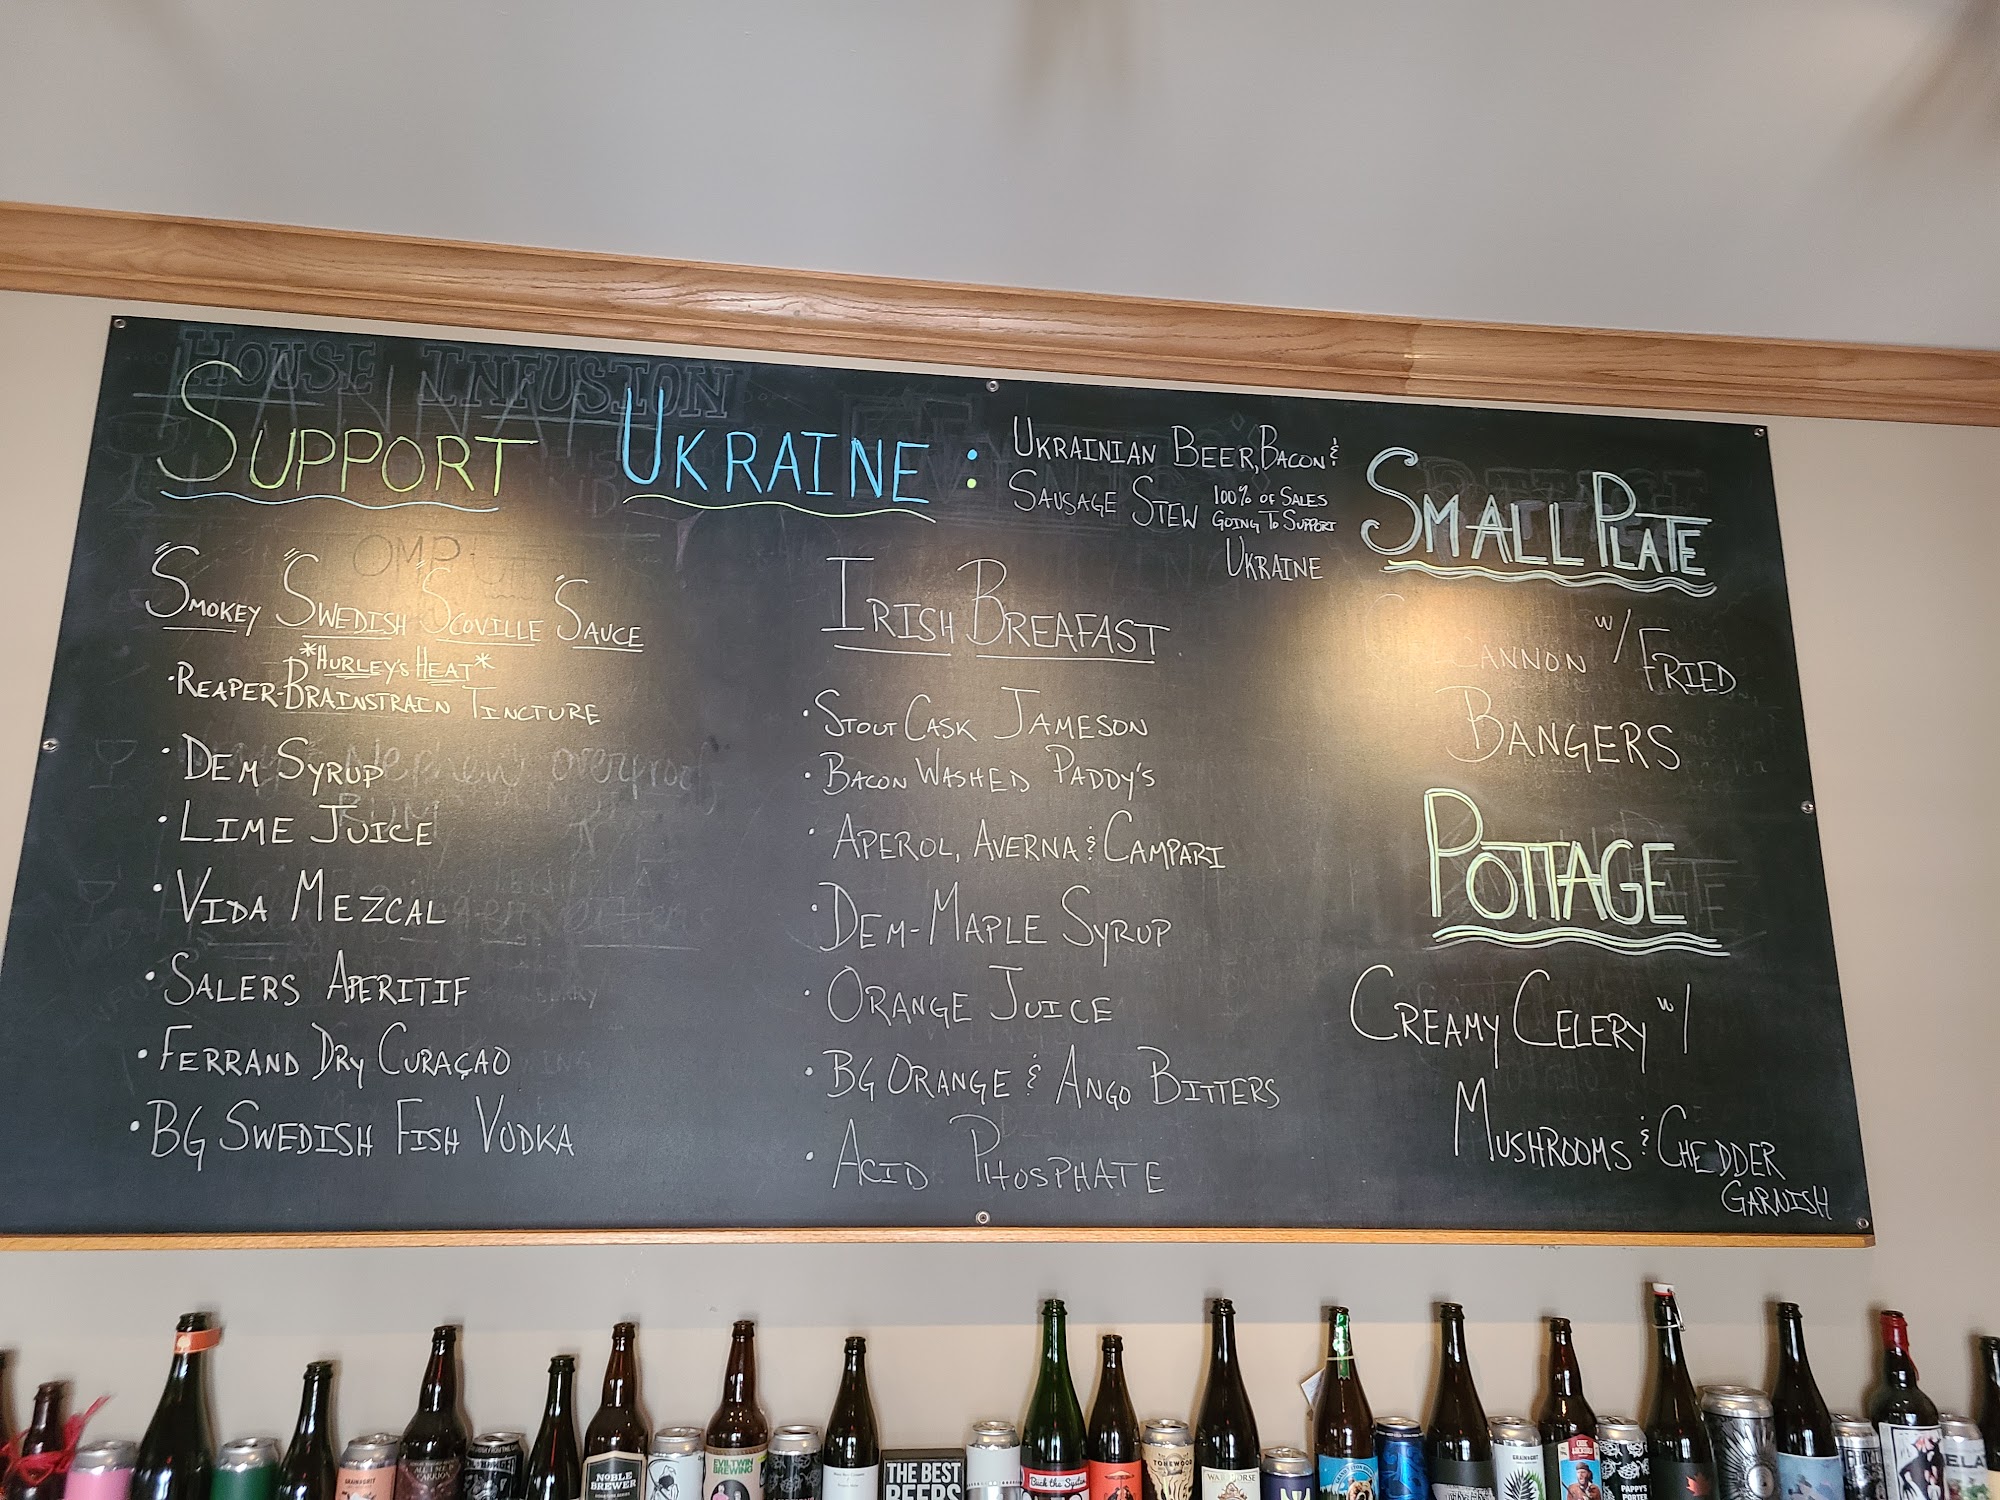 HOUSE INFUSION
SUPPORT UKRAINE :
UKRAINIAN BEER, BACON &
SAUSAGE STEW 100% OF SALES
GOING TO SUPPORT
UKRAINE
"SMOKEY "SWEDISH "SCOVILLE "SAUCE
*HURLEY'S HEAT*
·REAPER-BRAINSTRAIN TINCTURE
·DEM SYRUP
·LIME JUICE
·VIDA MEZCAL
·SALERS APERITIF
·FERRAND DRY CURAÇAO
·BG SWEDISH FISH VODKA
Nephew overproof
RUM
IRISH BREAFAST
·STOUT CASK JAMESON
·BACON WASHED PADDY'S
·APEROL, AVERNA & CAMPARI
·DEM-MAPLE SYRUP
·ORANGE JUICE
·BG ORANGE & ANGO BITTERS
·ACID PHOSPHATE
SMALL PLATE
CANNON W/ FRIED
BANGERS
POTTAGE
CREAMY CELERY W/
MUSHROOMS & CHEDDER
GARNISH
NOBLE
BREWER
EVIL TWIN
BREWING
THE BEST
BEERS
Buck the System
TONEWOOD
WAR HORSE
GRAIN & GRIT
PAPPY'S
PORTER